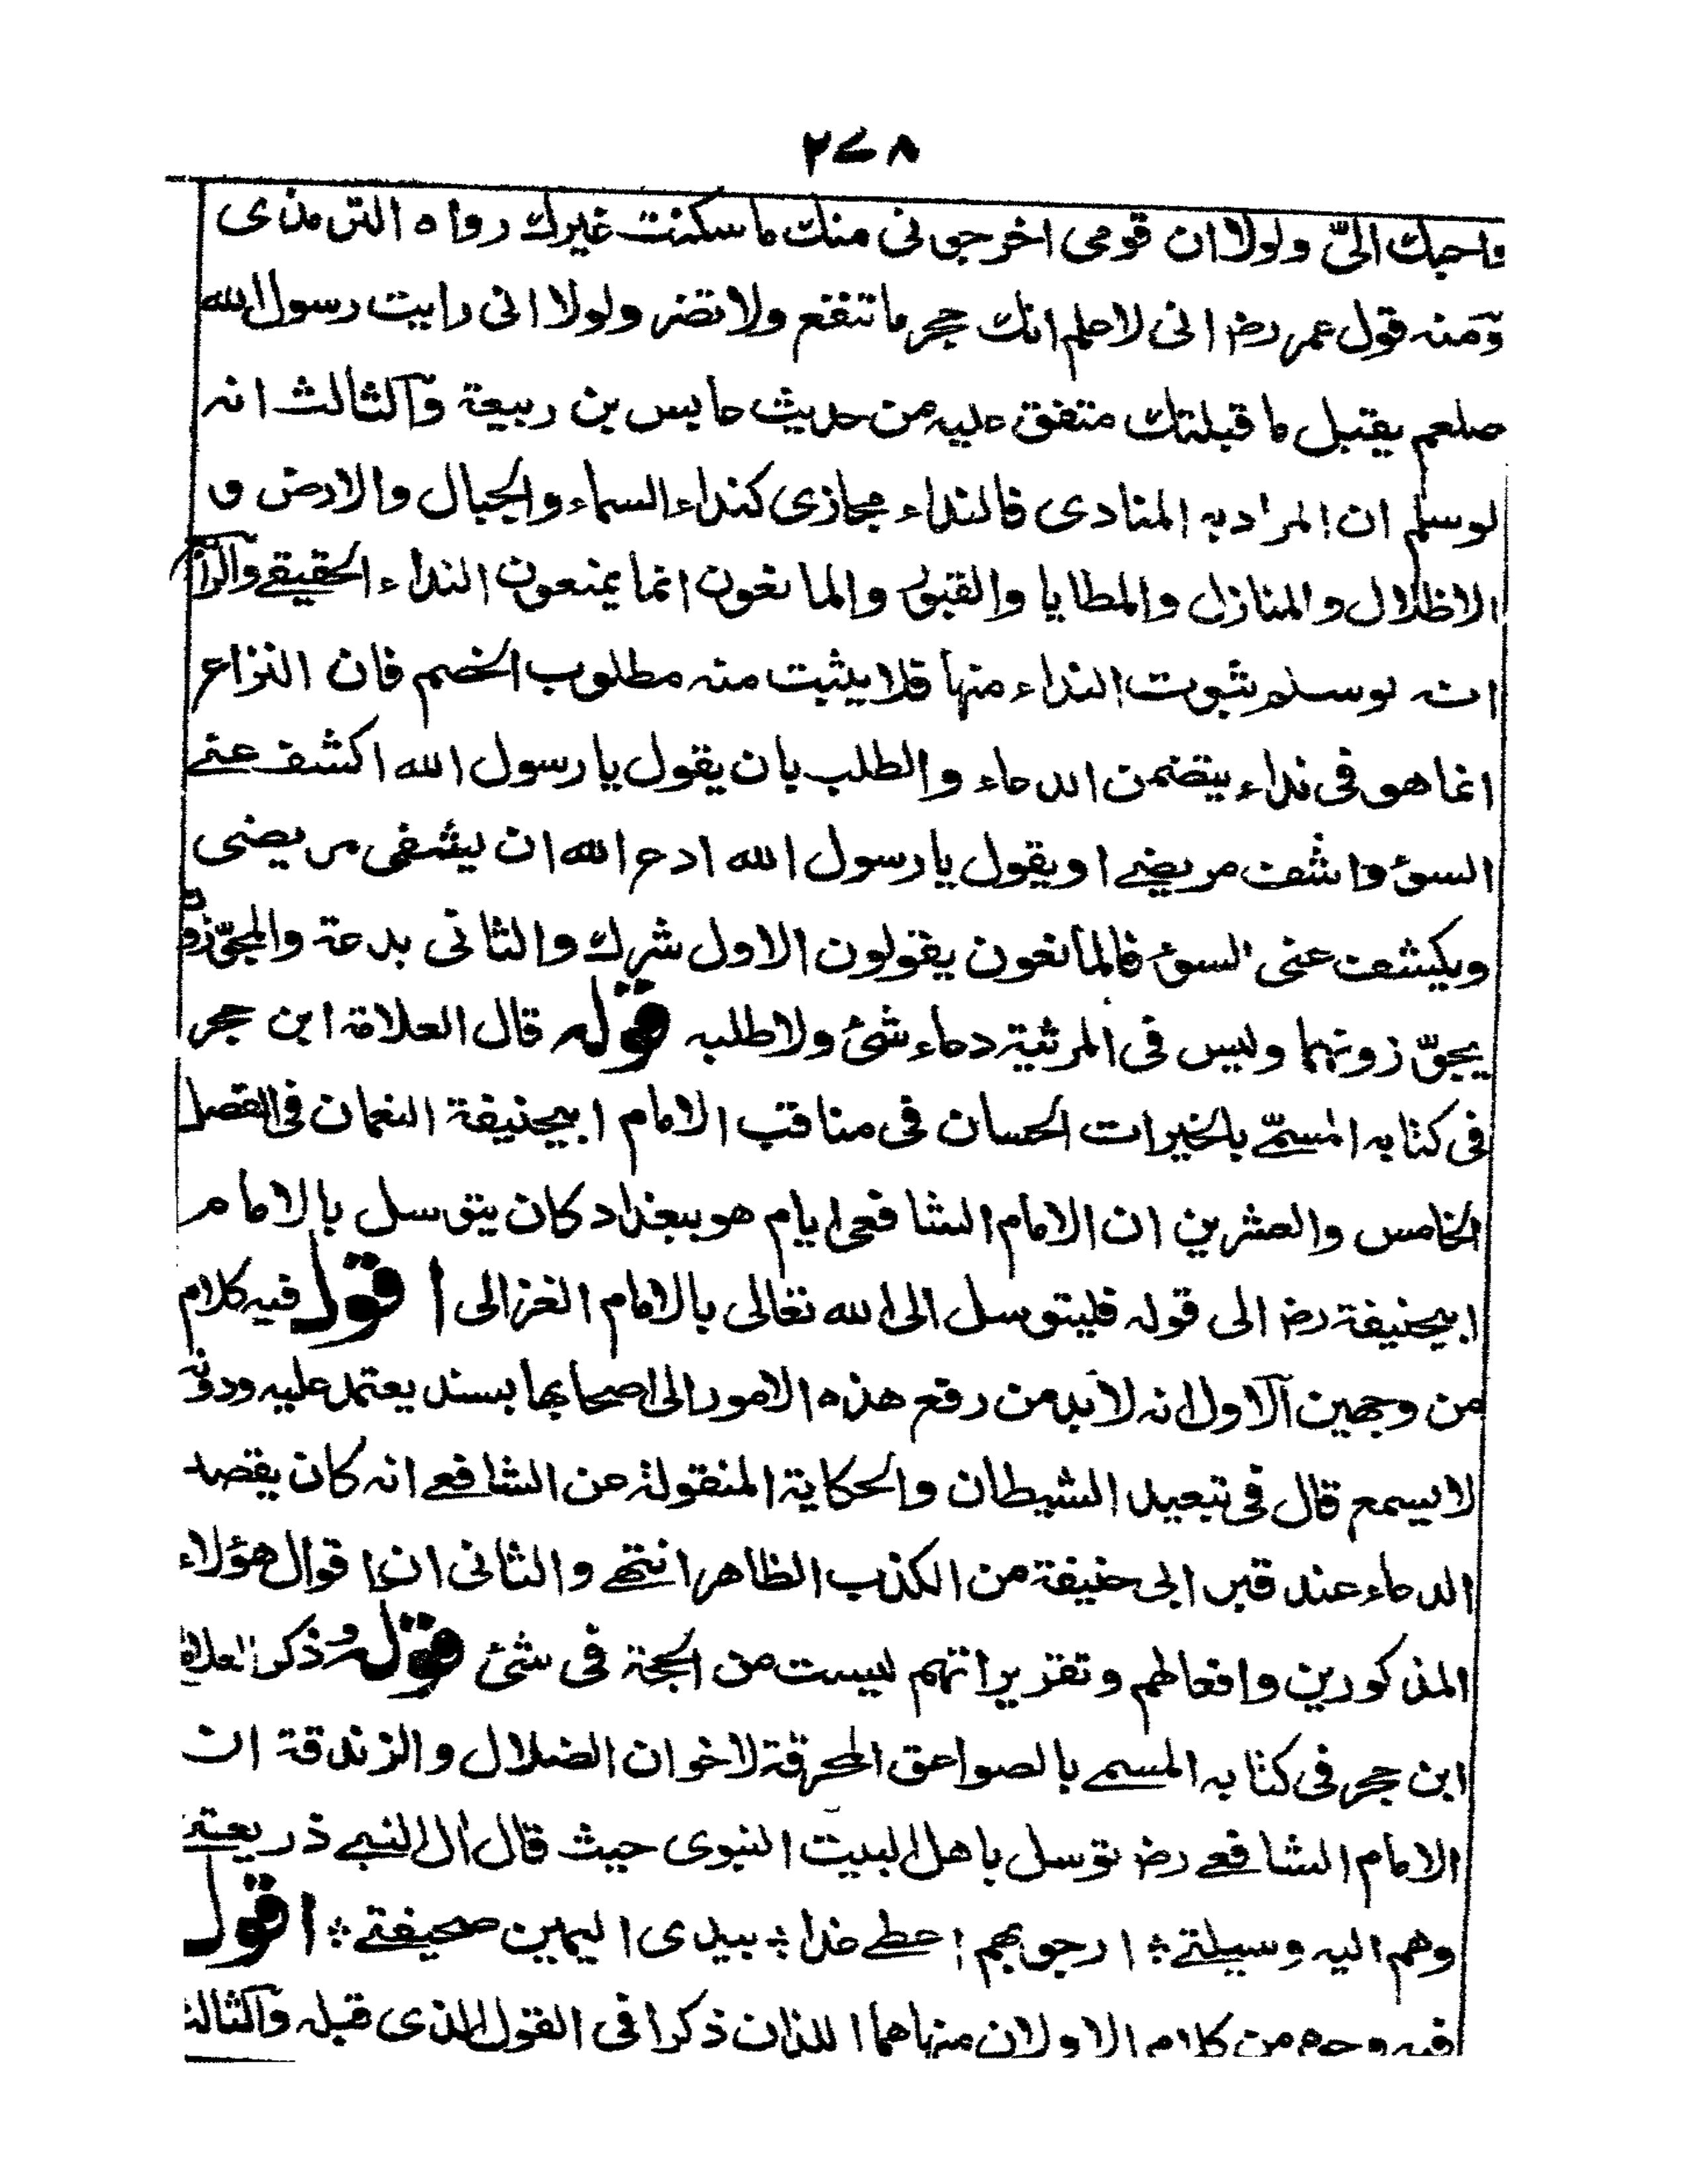 ٢٧٨
واحبك الىّ ولولا ان قومى اخرجونى منك ما سكنت غيرك رواه الترمذى
ومنه قول عمر رض انى لاعلم انك حجر ما تنفع ولا تضر ولولا انى رايت رسول الله
صلعم يقبل ما قبلتك متفق عليه من حديث عابس بن ربيعة والثالث انه
لوسلم ان المراد به المنادى فالنداء مجازى كنداء السماء والجبال والارض و
الاظلال والمنازل والمطايا والقبور والمانعون انما يمنعون النداء الحقيقے والرابع
انه لوسلم ثبوت النداء منها فلا يثبت منه مطلوب الخصم فان النزاع
انما هو فى نداء يتضمن الدعاء والطلب بان يقول يا رسول الله اكشف عنے
السوء واشف مريضے او يقول يا رسول الله ادع الله ان يشفى مريضى
ويكشف عنى السوء فالمانعون يقولون الاول شرك والثانى بدعة والمجوّزون
يجوّزونهما وليس فى المرثية دعاء شئ ولا طلبه قوله قال العلامة ابن حجر
فى كتابه المسمّے بالخيرات الحسان فى مناقب الامام ابيحنيفة النعمان فى الفصل
الخامس والعشرين ان الامام الشافعى ايام هو ببغداد كان يتوسل بالامام
ابيحنيفة رض الى قوله فليتوسل الى الله تعالى بالامام الغزالى اقول فيه كلام
من وجهين الاول انه لابد من رفع هذه الامور الى اصحابها بسند يعتمد عليه ودونه
لا يسمع قال فى تبعيد الشيطان والحكاية المنقولة عن الشافعے انه كان يقصد
الدعاء عند قبر ابى حنيفة من الكذب الظاهر انتهے والثانى ان اقوال هؤلاء
المذكورين وافعالهم وتقريراتهم ليست من الحجة فى شئ قوله وذكر العلامة
ابن حجر فى كتابه المسمے بالصواعق المحرقة لاخوان الضلال والزندقة ان
الامام الشافعے رض توسل باهل البيت النبوى حيث قال ال النبے ذريعتے
وهم اليه وسيلتے ؞ ارجو بهم اعطے غدا ؞ بيدى اليمين صحيفتے ؞ اقول
فيه وجوه من كلام الاولان منها هما اللذان ذكرا فى القول الذى قبله والثالث